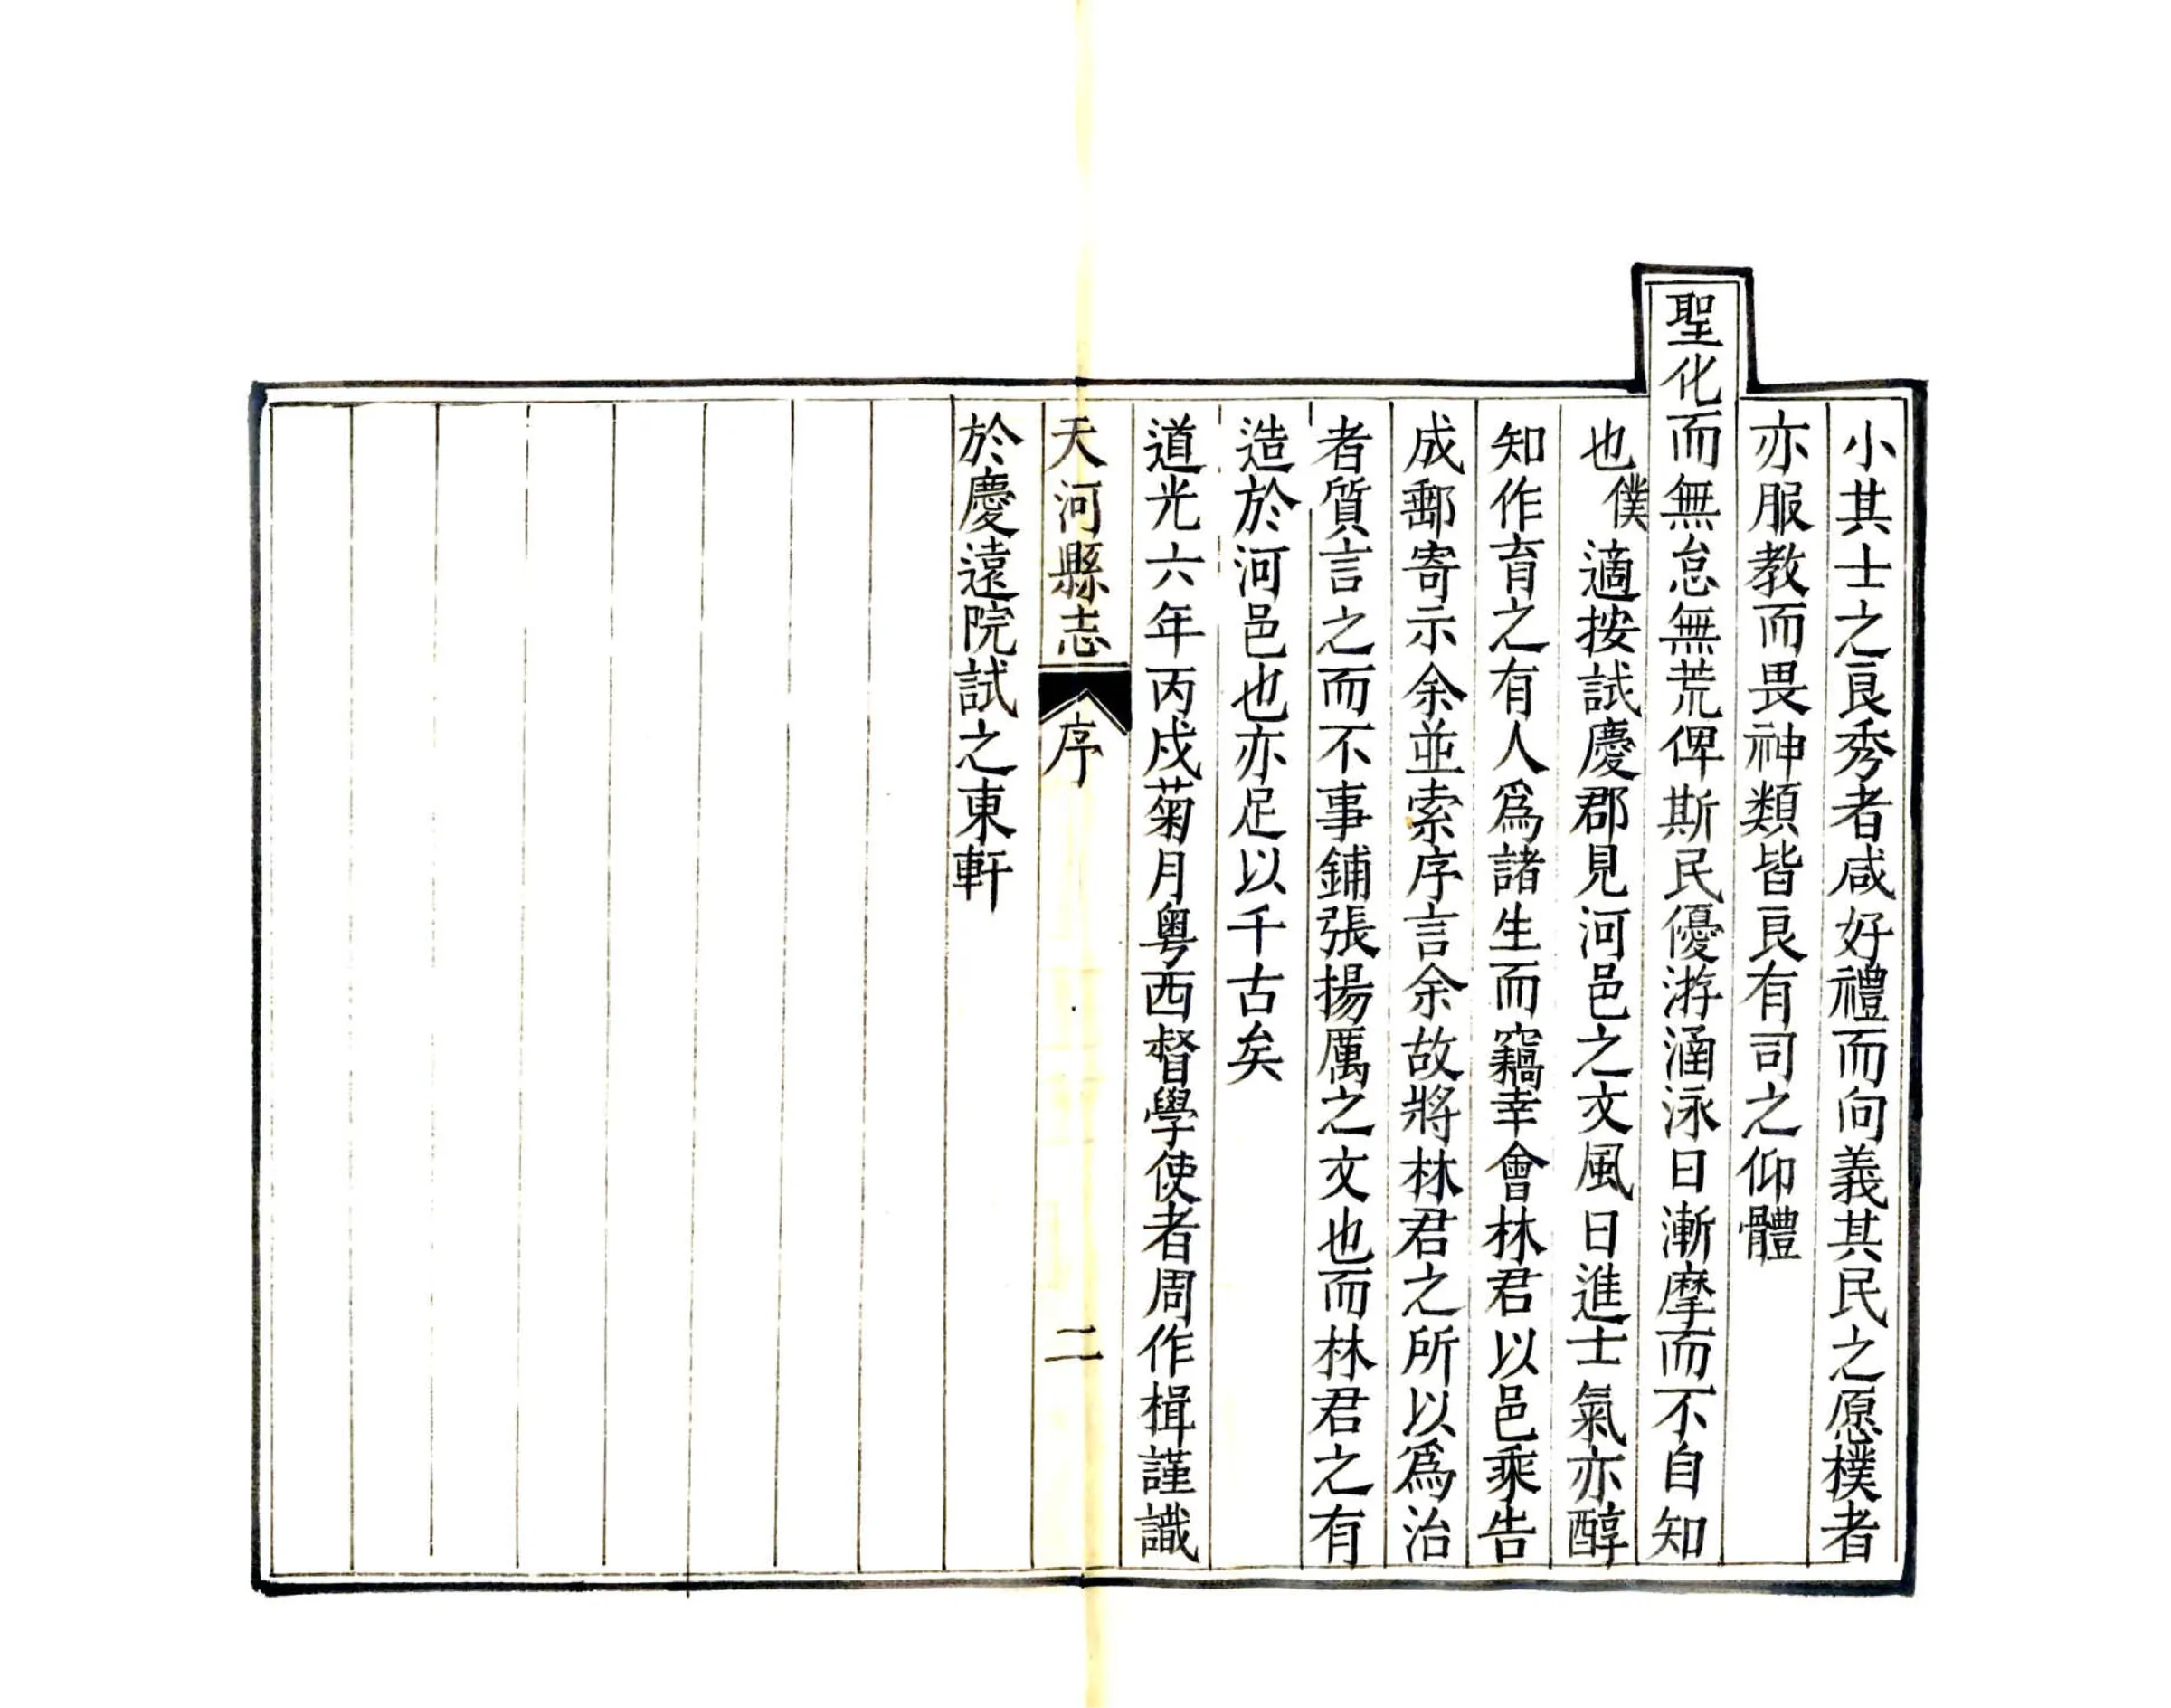 小其士之良秀者咸好禮而向義其民之愿樸者
亦服教而畏神類皆良有司之仰體
聖化而無怠無荒俾斯民優游涵泳日漸摩而不自知
也僕適按試慶郡見河邑之文風日進士氣亦醇
知作育之有人爲諸生而竊幸會林君以邑乘告
成郵寄示余並索序言余故將林君之所以爲治
者質言之而不事鋪張揚厲之文也而林君之有
造於河邑也亦足以千古矣
道光六年丙戌菊月粵西督學使者周作楫謹識
天河縣志 序 二
於慶遠院試之東軒